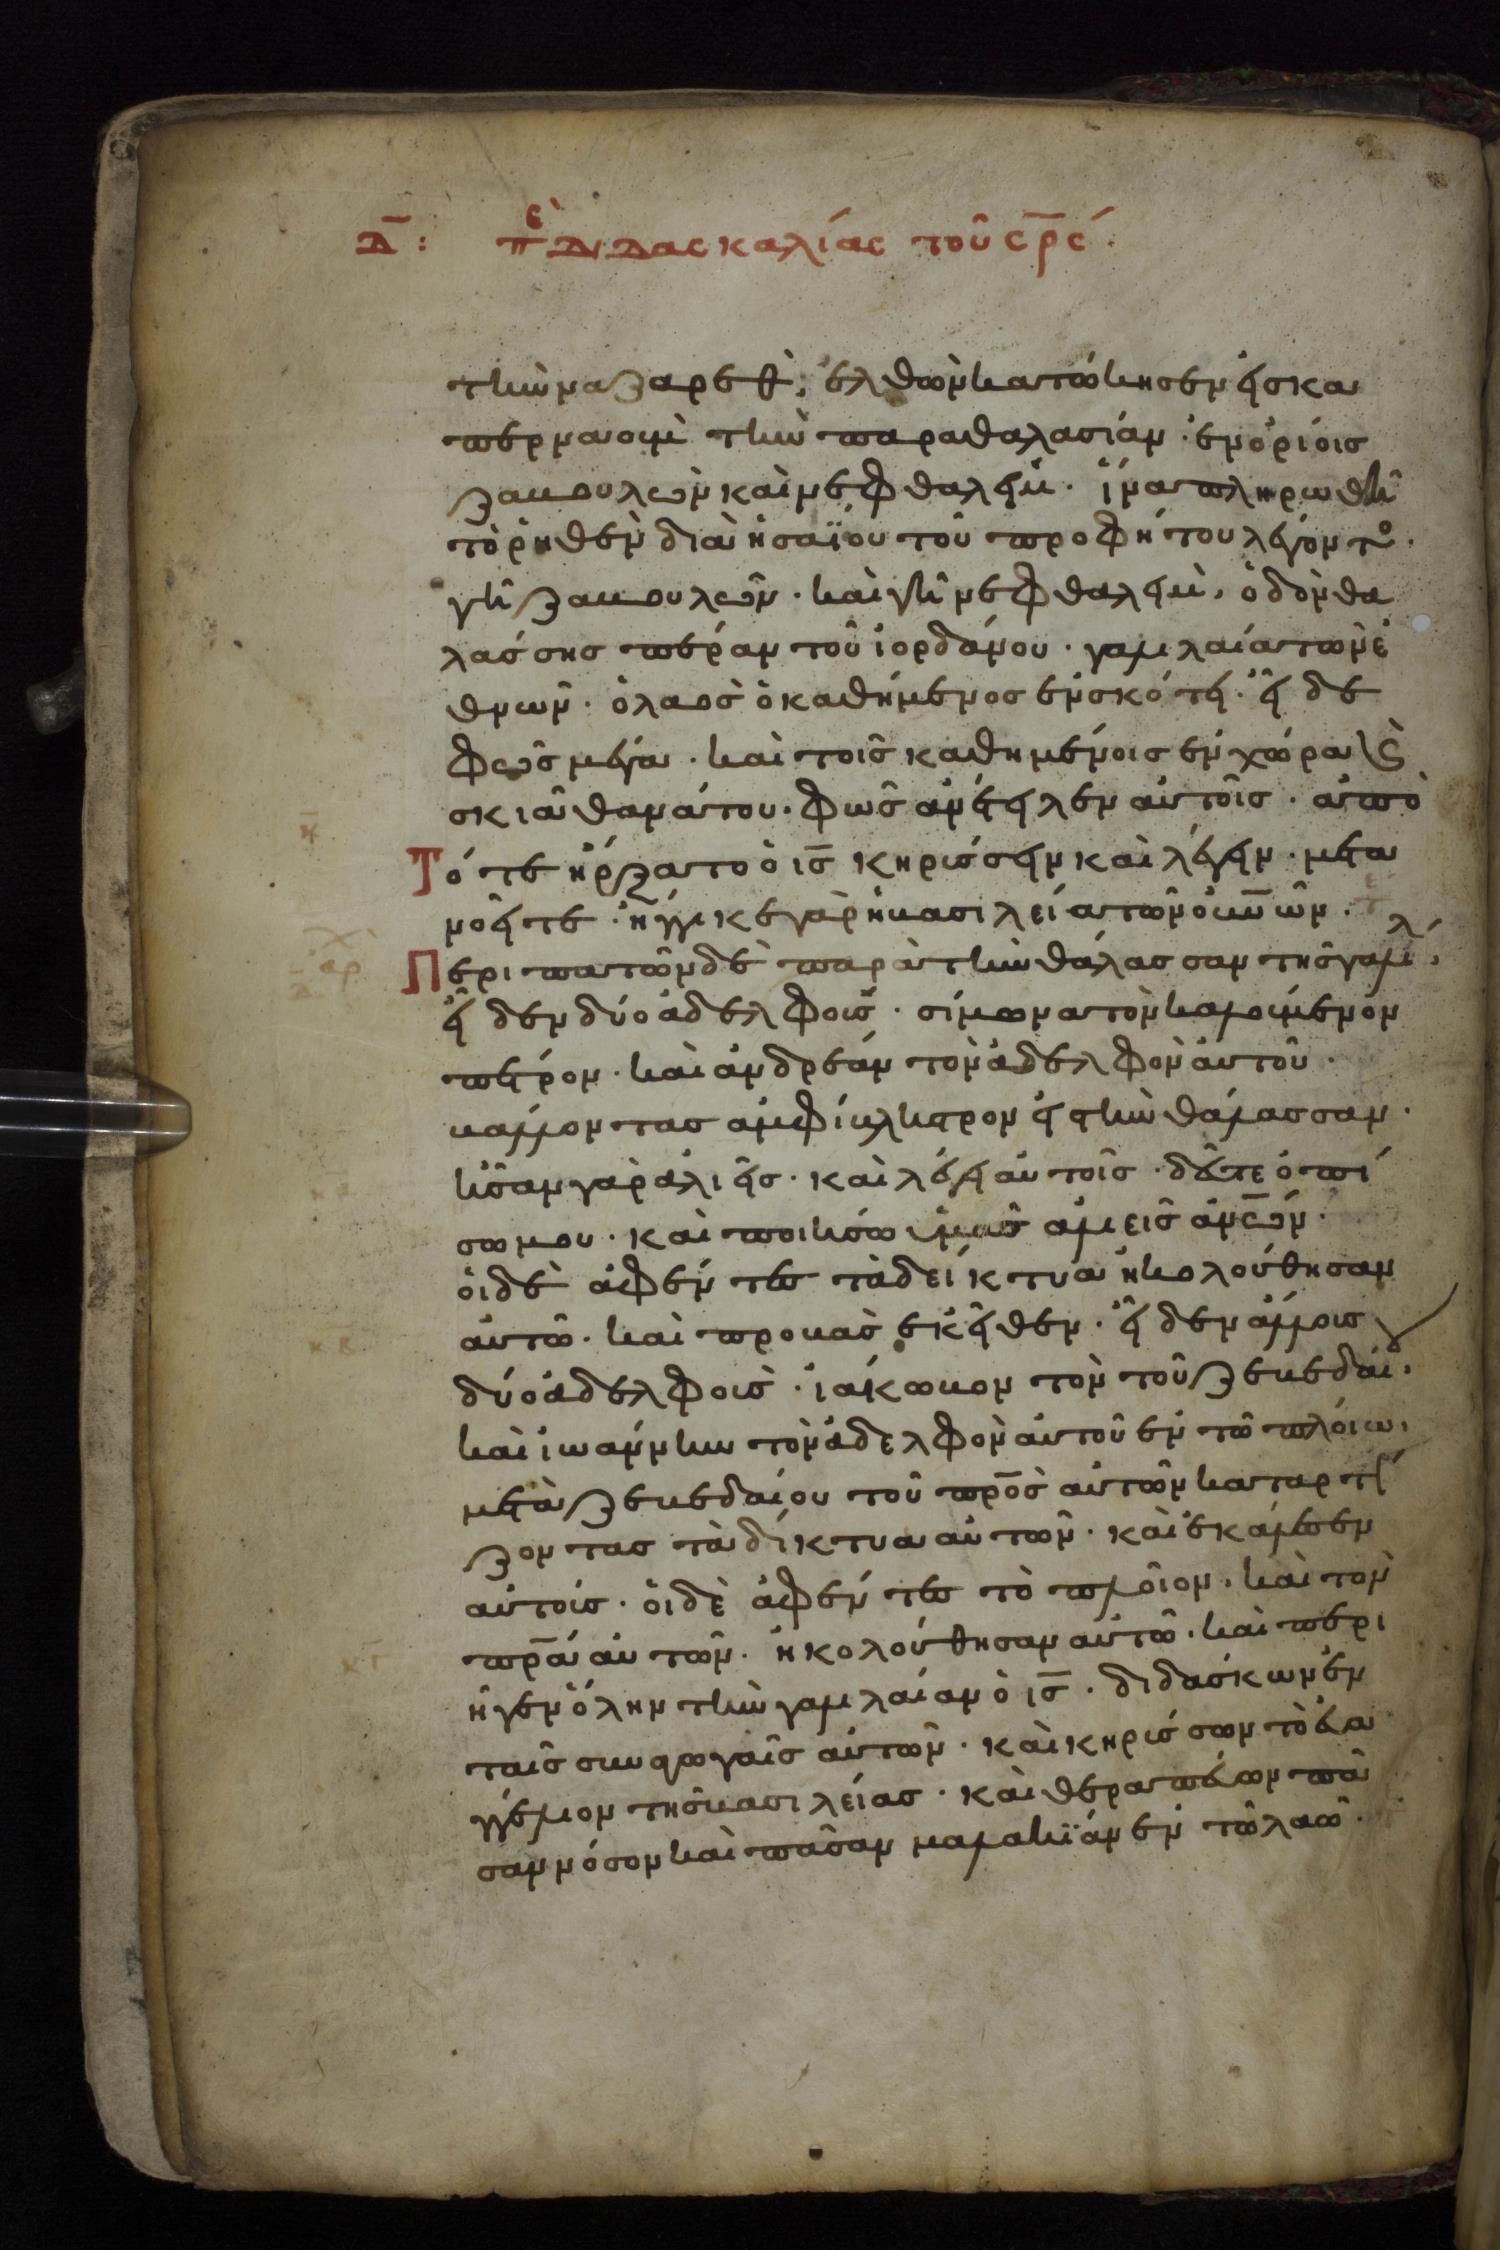 Δ̅: πε διδασκαλίας τοῦ σ̅ρ̅σ́.
τὴν ναζαρεθ, ἐλθὼν κατώκησεν εἰς κα
περναοὺμ τὴν παραθαλασίαν. ἐν ὁρίοισ
ζαβουλὼν καὶ νεφθαλεὶμ. ἵνα πληρωθῆ
τὸ ῥηθὲν διὰ ἠσαΐου τοῦ προφήτου λέγοντο.
γῆ ζαβουλῶν. καὶ γῆ νεφθαλεὶμ, ὁδὸν θα
λάσσησ πέραν τοῦ ἰορδάνου. γαλιλαία τῶν ἐ
θνῶν. ὁ λαὸσ ὁ καθήμενοσ ἐν σκότει. εἶδε
φῶσ μέγα. καὶ τοῖσ καθημένοισ ἐν χώρα κ̀
σκιᾶ θανάτου. φῶσ ἀνέτειλεν αὐτοῖσ. ἀπὸ
Τότε ἤρξατο ὁ ι̅σ̅ κηρίσσειν καὶ λέγειν. μετα
νοεῖτε. ἤγγικε γὰρ ἡ βασιλεία τῶν ὀυ̅ν̅ῶν.
Περιπατῶν δὲ παρὰ τὴν θάλασσαν τῆσ γαλιλ,
εἶδεν δύο ἀδελφοισ. σίμωνα τὸν καλοίμενον
πέτρον. καὶ ἀνδρέαν τὸν ἀδελφὸν ἀυτοῦ.
βάλλοντασ ἀμφίβληστρον εἰσ τὴν θάλασσαν.
ἦσαν γὰρ ἁλιεῖσ. καὶ λέγει αὐτοῖσ. δεῦτε ὀπί
σω μου. καὶ ποιήσω ὑμᾶσ ἁλιεῖσ ἀν̅ῶν.
οἱ δὲ ἀφέντεσ τὰ δείκτυα ἠκολούθησαν
αὐτῶ. καὶ προβὰσ ἐκεῖθεν. εἶδεν ἄλλοισ
δύο ἀδελφοισ. ἰάκωβον τὸν τοῦ ζεβεδαί.
καὶ ἰωάννην τὸν ἀδελφὸν αὐτοῦ ἐν τῶ πλόιω.
μετὰ ζεβεδαίου τοῦ πρ̅ὸσ αὐτῶν καταρτί
ζοντασ τὰ δίκτυα αὐτῶν. καὶ ἐκάλεσεν
αὐτοίσ. οἱ δὲ ἀφέντεσ τὸ πλοῖον. καὶ τὸν
πρ̅α αὐτῶν. ἠκολούθησαν αὐτῶ. καὶ περι
ῆγεν ὅλην τὴν γαλιλαίαν ὁ ι̅σ̅. διδάσκων ἐν
ταῖσ συναγωγαῖσ αὐτῶν. καὶ κηρίσσων τὸ εὐα
γγέλιον τῆσ βασιλείασ. καὶ θεραπεύων πᾶ
σαν νόσον καὶ πᾶσαν μαλακΐαν ἐν τῶ λαῶ.